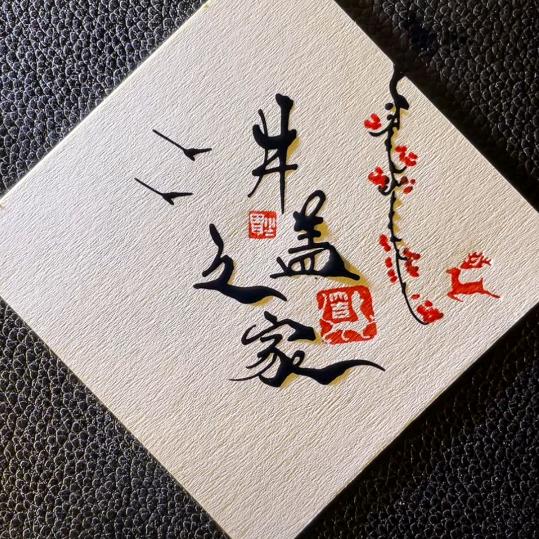 井盖之家